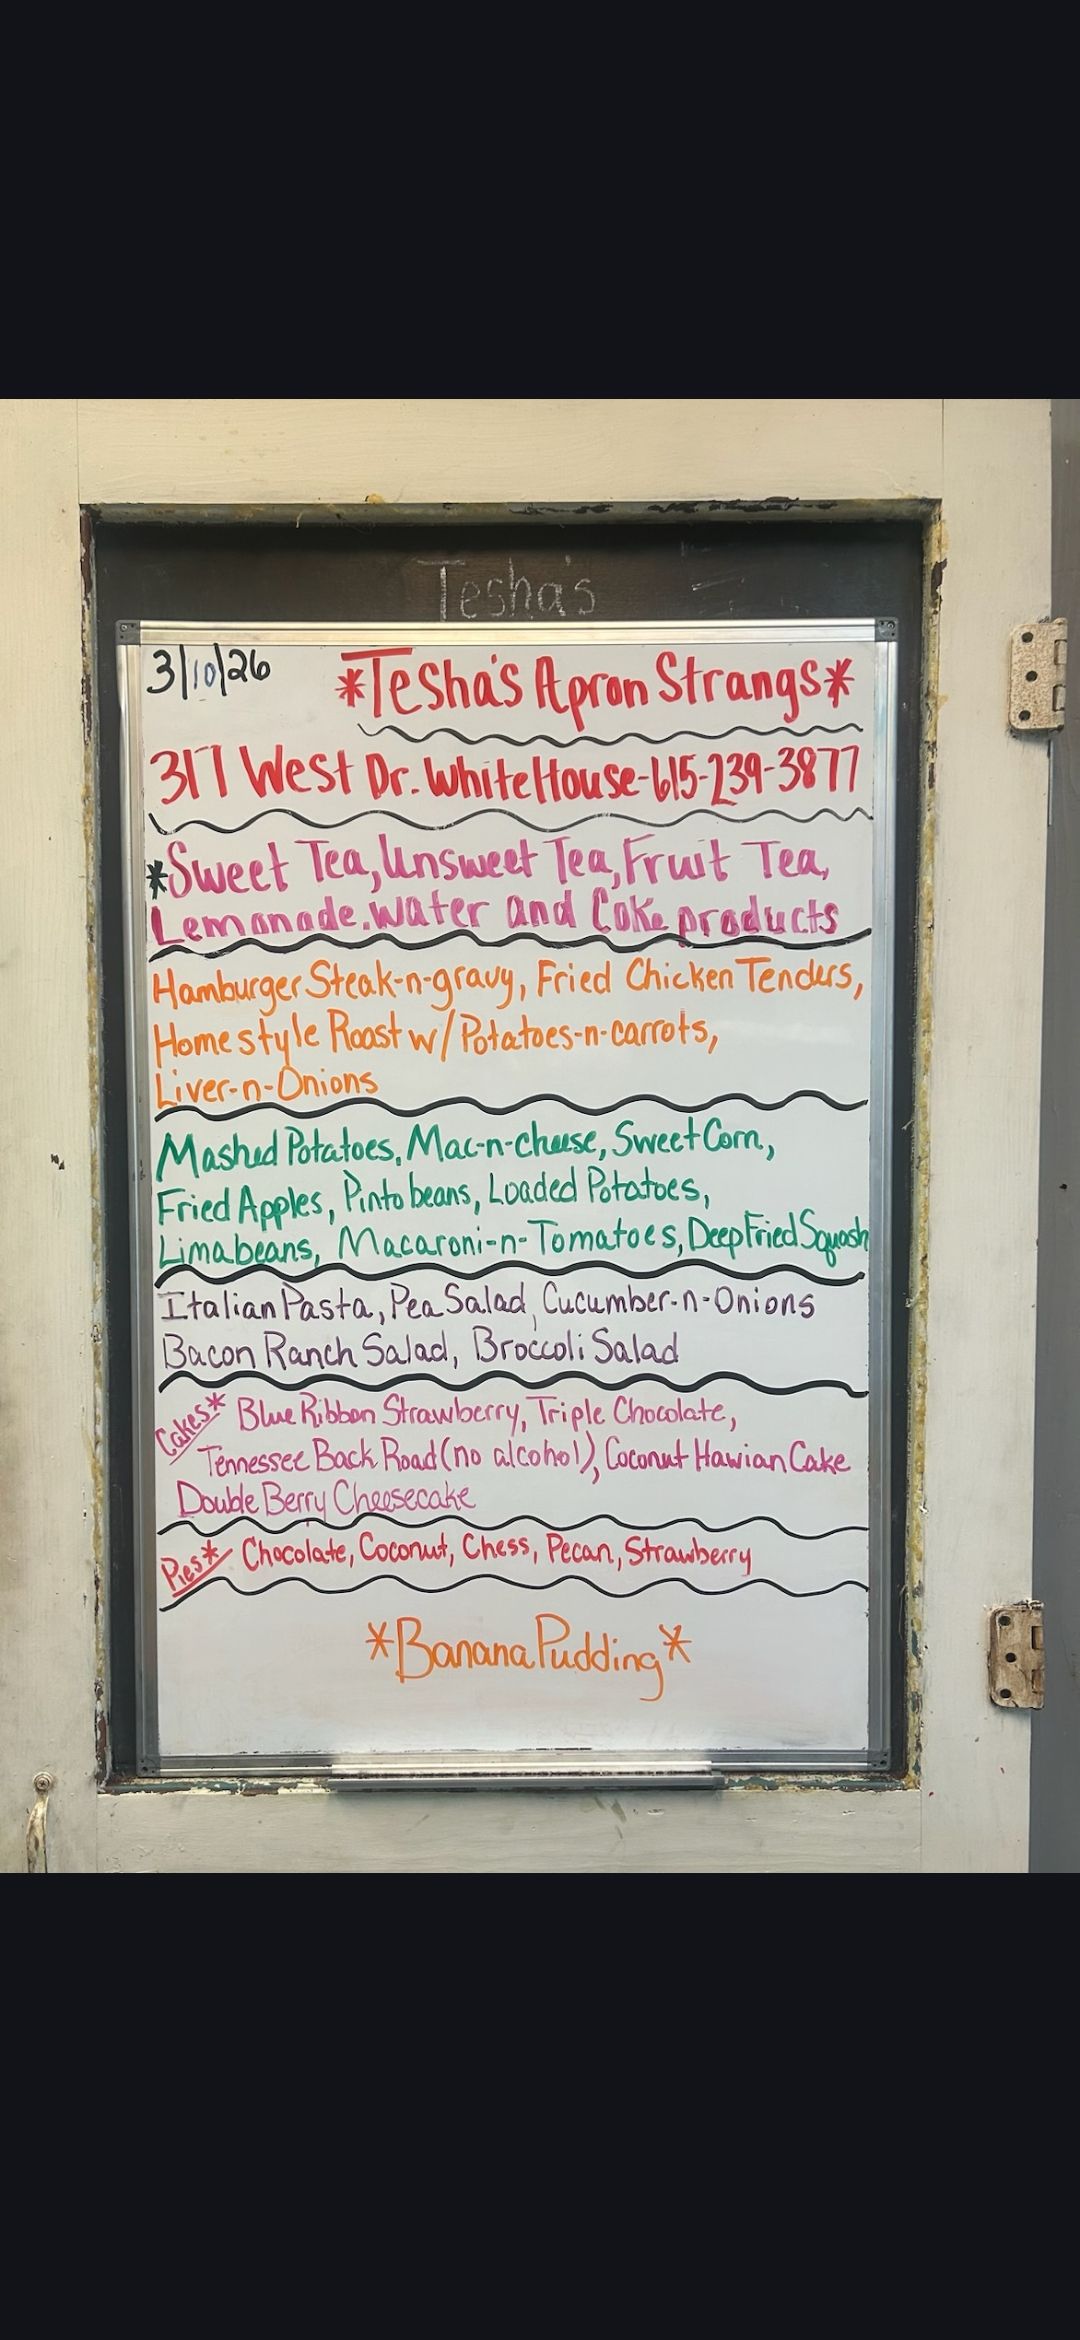 Tesha's
3/10/26
*Tesha's Apron Strangs*
317 West Dr. WhiteHouse-615-239-3877
*Sweet Tea, Unsweet Tea, Fruit Tea,
Lemonade. water and Coke products
Hamburger Steak-n-gravy, Fried Chicken Tenders,
Homestyle Roast w/ Potatoes-n-carrots,
Liver-n-Onions
Mashed Potatoes, Mac-n-cheese, Sweet Corn,
Fried Apples, Pinto beans, Loaded Potatoes,
Lima beans, Macaroni-n-Tomatoes, Deep Fried Squash
Italian Pasta, Pea Salad, Cucumber-n-Onions
Bacon Ranch Salad, Broccoli Salad
Cakes* Blue Ribbon Strawberry, Triple Chocolate,
Tennessee Back Road (no alcohol), Coconut Hawian Cake
Double Berry Cheesecake
Pies* Chocolate, Coconut, Chess, Pecan, Strawberry
*Banana Pudding*